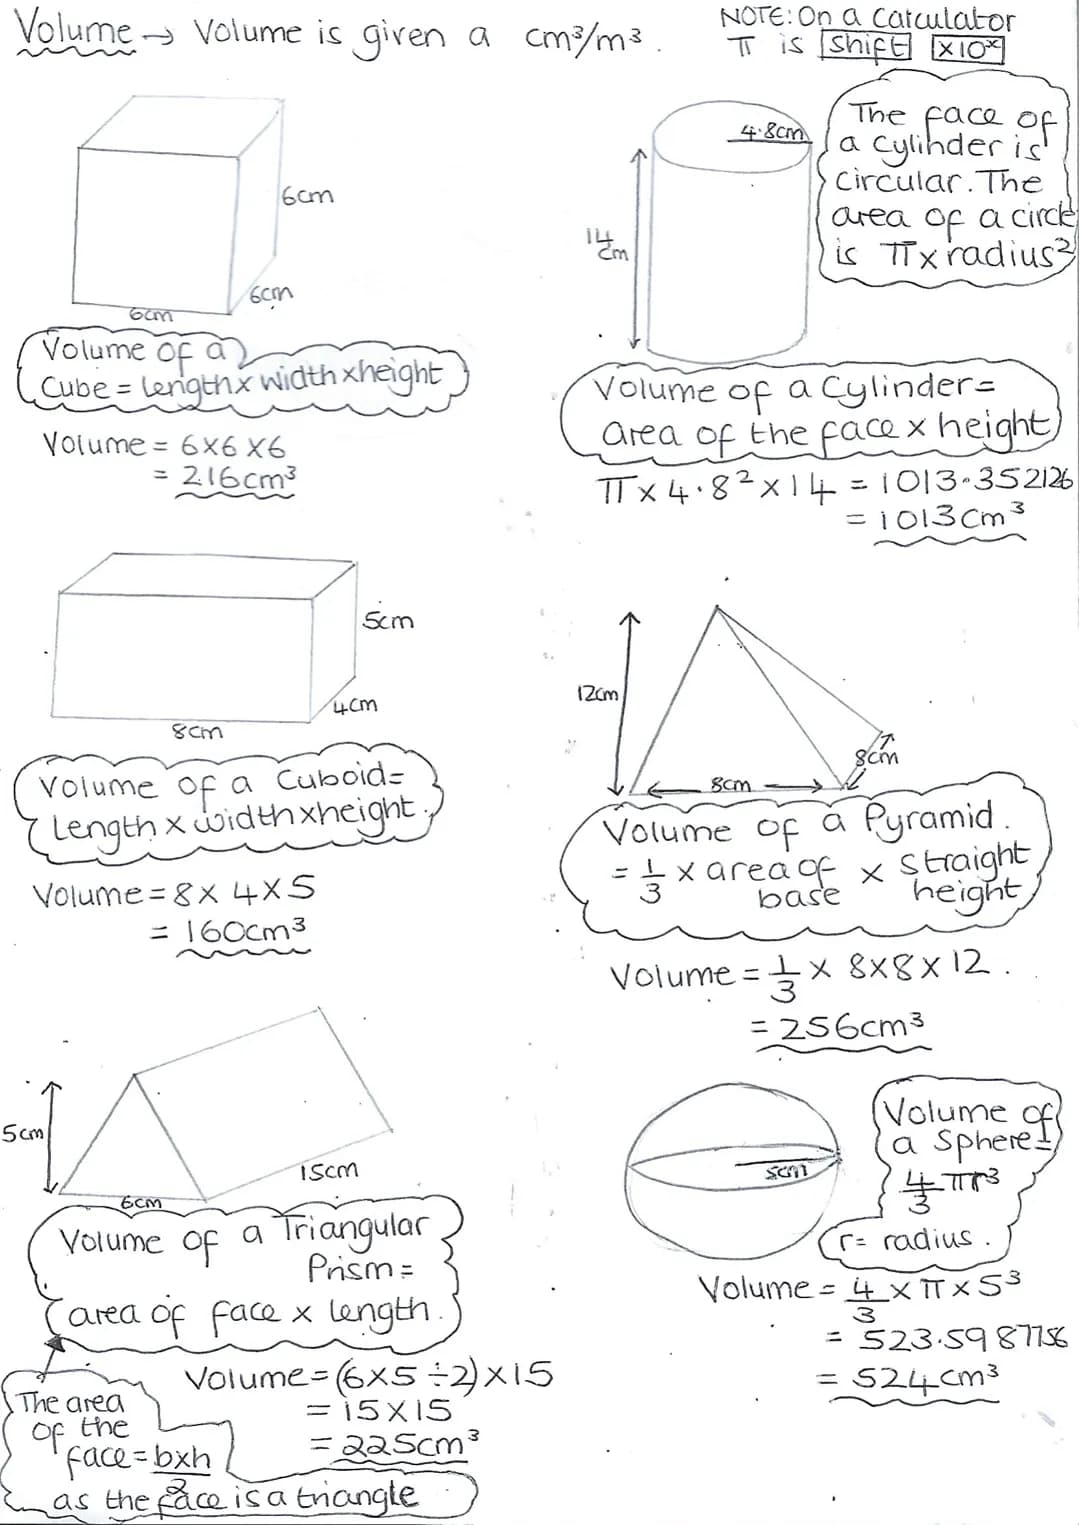 Volume → Volume is given a cm³/m³.
NOTE: On a Calculator
π is Shift ×10ˣ
6cm
6cm
6cm
Volume of a
Cube = length x width x height
Volume = 6x6x6
= 216cm³
4.8cm
14
cm
The face of
a cylinder is
circular. The
area of a circle
is π x radius²
Volume of a Cylinder=
area of the face x height
π x 4.8² x 14 = 1013.352126
= 1013cm³
5cm
4cm
8cm
Volume of a Cuboid=
Length x width x height.
Volume = 8 x 4 x 5
= 160cm³
12cm
8cm
8cm
Volume of a Pyramid.
= 1/3 x area of base x straight height
Volume = 1/3 x 8x8x12.
= 256cm³
5cm
15cm
6cm
Volume of a Triangular
Prism =
area of face x length.
The area
of the
face = bxh/2
as the face is a triangle
Volume = (6x5÷2)x15
= 15x15
= 225cm³
5cm
Volume of
a Sphere=
4/3 πr³
r= radius.
Volume = 4/3 x π x 5³
= 523.5987756
= 524cm³